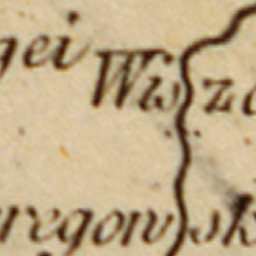 gei
Wis z
regow sk